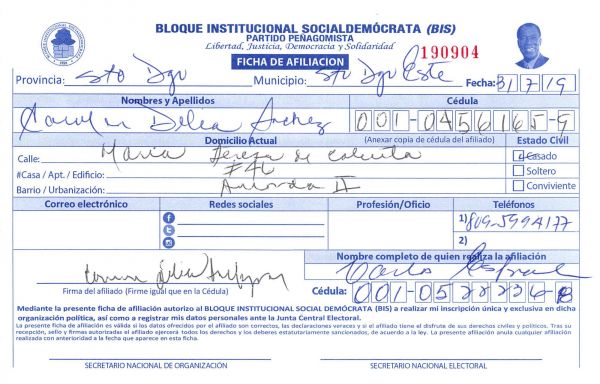 BLOQUE INSTITUCIONAL SOCIALDEMÓCRATA (BIS)
PARTIDO PEÑAGOMISTA
Libertad, Justicia, Democracia y Solidaridad
FICHA DE AFILIACION
190904
Provincia: Sto Dgo Municipio: Sto Dgo Este Fecha: 31/7/19
Nombres y Apellidos Cédula
Delea 001-0456165-9
Domicilio Actual (Anexar copia de cédula del afiliado) Estado Civil
Calle: Maria Teresa de Calcuta Casado
#Casa / Apt. / Edificio: #46 Soltero
Barrio / Urbanización: II Conviviente
Correo electrónico Redes sociales Profesión/Oficio Teléfonos
1) 809-5994177
2)
Nombre completo de quien realiza la afiliación
Carlos
Firma del afiliado (Firme igual que en la Cédula) Cédula: 001-0522236-8
Mediante la presente ficha de afiliación autorizo al BLOQUE INSTITUCIONAL SOCIAL DEMÓCRATA (BIS) a realizar mi inscripción única y exclusiva en dicha
organización política, así como a registrar mis datos personales ante la Junta Central Electoral.
La presente ficha de afiliación es válida si los datos ofrecidos por el afiliado son correctos, las declaraciones veraces y si el afiliado tiene el disfrute de sus derechos civiles y políticos. Tras su
recepción, sello y firmas autorizadas el afiliado ejercerá todos los derechos y los deberes estatutariamente sancionados, de acuerdo a la ley. La presente afiliación anula cualquier afiliación
realizada con anterioridad a la fecha que aparece en esta ficha.
SECRETARIO NACIONAL DE ORGANIZACIÓN SECRETARIO NACIONAL ELECTORAL